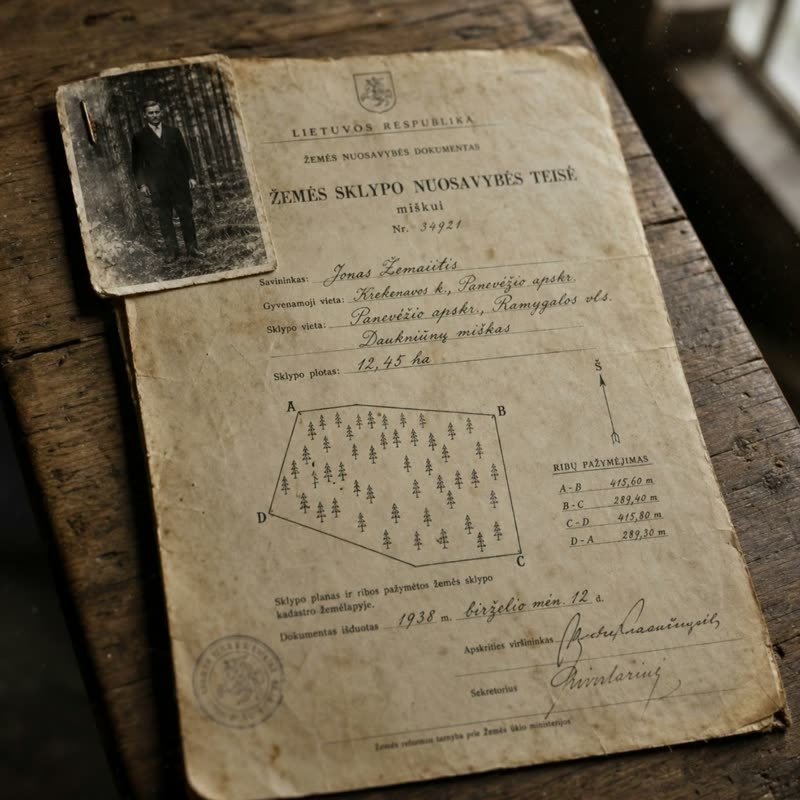 LIETUVOS RESPUBLIKA
ŽEMĖS NUOSAVYBĖS DOKUMENTAS
ŽEMĖS SKLYPO NUOSAVYBĖS TEISĖ
miškui
Nr. 34921
Savininkas: Jonas Žemaiitis
Gyvenamoji vieta: Krekenavos k., Panevėžio apskr.
Sklypo vieta: Panevėžio apskr., Ramygalos vls.
Daukniūnų miškas
Sklypo plotas: 12,45 ha
Š
A
B
D
C
RIBŲ PAŽYMĖJIMAS
A-B 415,60 m
B-C 289,40 m
C-D 415,80 m
D-A 289,30 m
Sklypo planas ir ribos pažymėtos žemės sklypo
kadastro žemėlapyje.
Dokumentas išduotas 1938 m. birželio mėn. 12 d.
Apskrities viršininkas
Sekretorius
Žemės reformos tarnyba prie Žemės ūkio ministerijos